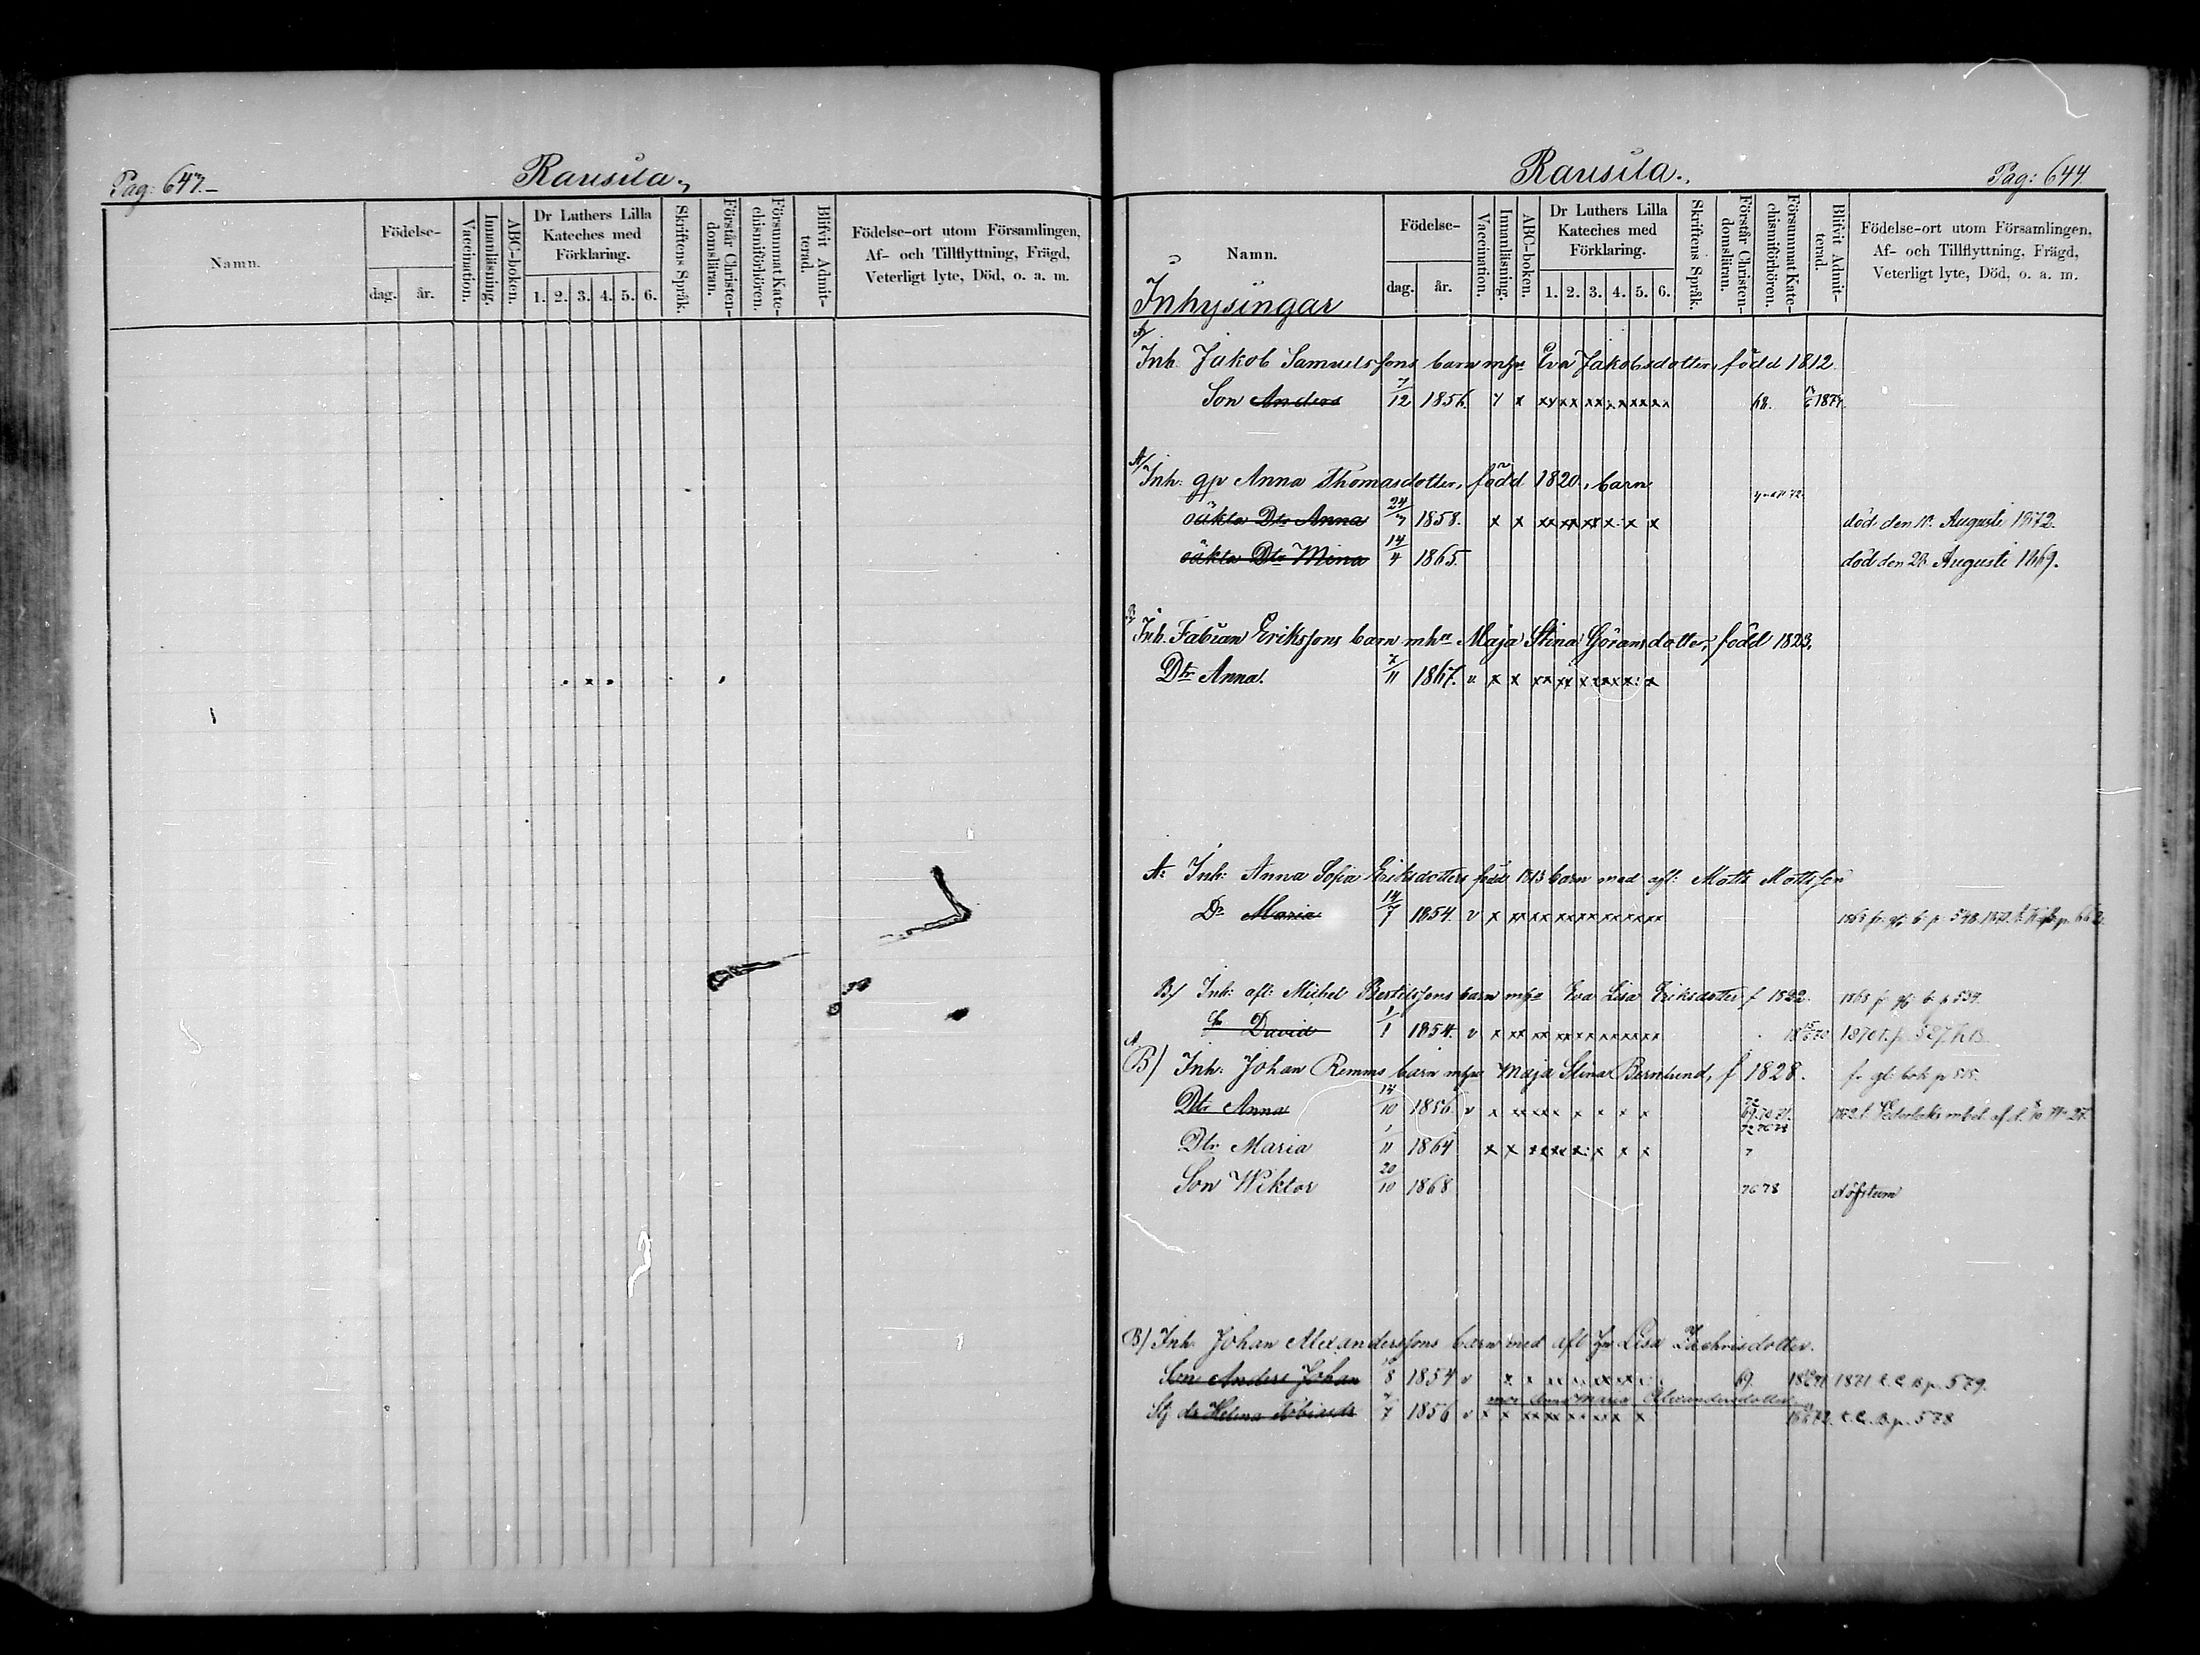 Pag: 647.
Rausila.
Namn.
Födelse-
dag. år.
Vaccination.
Innanläsning.
ABC-boken.
Dr Luthers Lilla Kateches med Förklaring.
1. 2. 3. 4. 5. 6.
Skriftens Språk.
Förstår Christendomsläran.
Försummat Katechismiförhören.
Blifvit Admitterad.
Födelse-ort utom Församlingen,
Af- och Tillflyttning, Frägd,
Veterligt lyte, Död, o. a. m.
Rausila.
Pag: 644.
Namn.
Inhysingar
Födelse-
dag. år.
Vaccination.
Innanläsning.
ABC-boken.
Dr Luthers Lilla Kateches med Förklaring.
1. 2. 3. 4. 5. 6.
Skriftens Språk.
Förstår Christendomsläran.
Försummat Katechismiförhören.
Blifvit Admitterad.
Födelse-ort utom Församlingen,
Af- och Tillflyttning, Frägd,
Veterligt lyte, Död, o. a. m.
A/
Inh. Jakob Samuelssons barn mhu Eva Jakobsdotter, född 1812.
Son Anders 7/12 1856. 68.
A/ Inh: qp Anna Thomasdotter, född 1820, barn
oäkta Dtr Anna 24/7 1858. död den Augusti 1872.
oäkta Dtr Mina 14/4 1865. död den 28 Augusti 1869.
B/ Inh. Fabian Erikssons barn mhu Maja Stina Göransdotter, född 1823.
Dtr Anna. 7/11 1867. v
A: Inh: Anna Sofia Eriksdotters född 1813 barn med afl: Matts Mattsson
Dr Maria 14/7 1854. v
B/ Inh: afl: Michel Bertilssons barn mhu Eva Lisa Eriksdotter f 1822.
S. David 1/1 1854. v
A
B) Inh. Johan Remms barn mhu Maja Stina Burnlund, f 1828. fr gl: bok p
Dtr Anna 14/10 1856. v 72 69.70.71.
Dtr Maria 1/11 1864
Son Wiktor 20/10 1868 76 78 döfstum
B) Inh Johan Alexanderssons barn med afl hu Lisa Zachrisdotter.
Son Anders Johan 8 1854 v 69 1871 t. C. B p. 579.
mor Anna Maria Alexandersdotter
Stj dr Helena 7/7 1856 v t. C. B p. 578